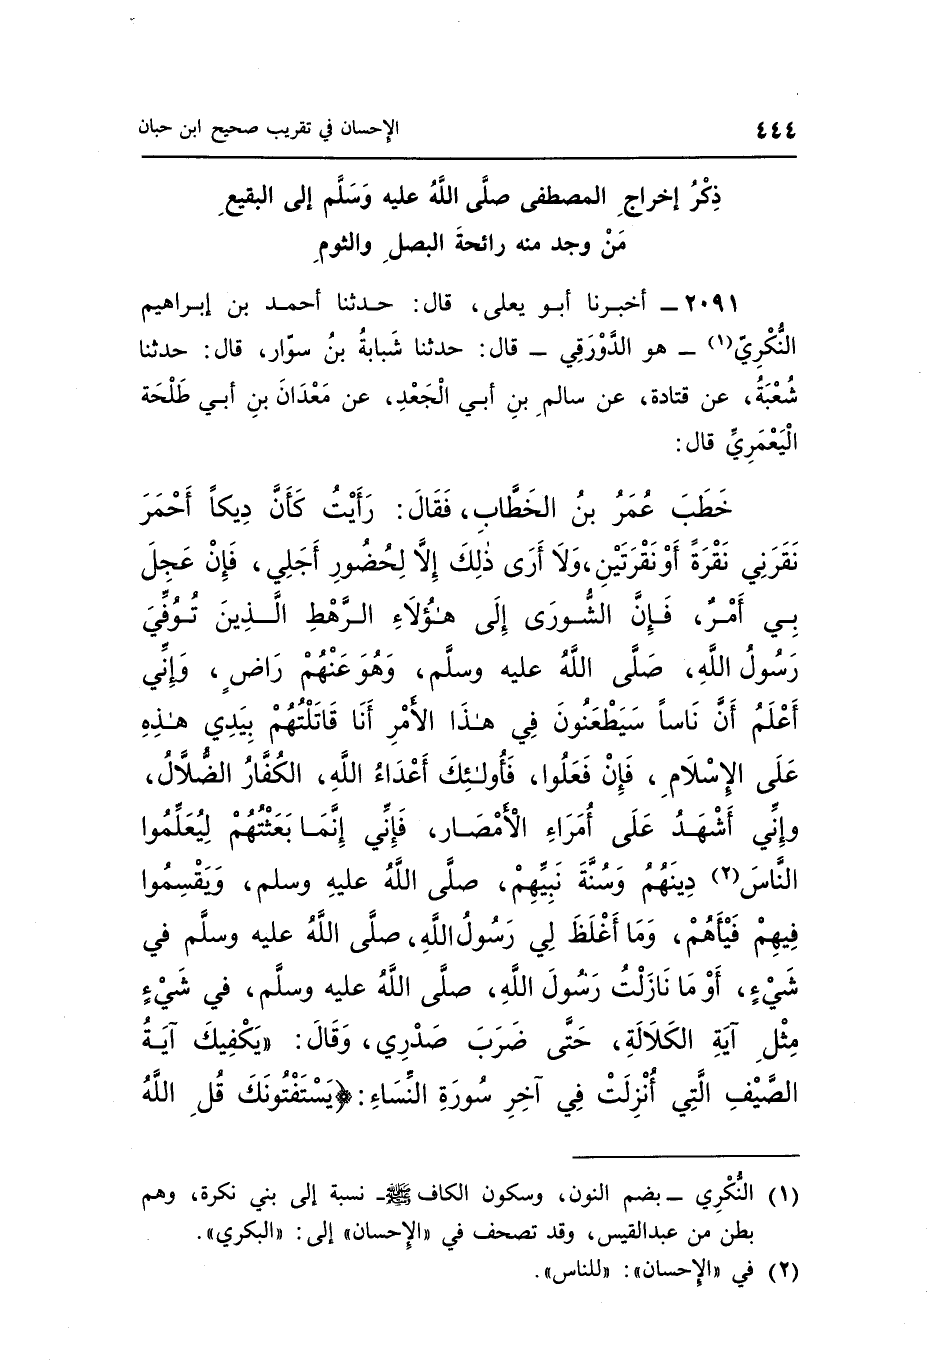 ٤٤٤ الإحسان في تقريب صحيح ابن حبان
ذِكْرُ إخراجِ المصطفى صلَّى اللَّهُ عليه وَسَلَّم إلى البقيعِ
مَنْ وجد منه رائحةَ البصلِ والثومِ
٢٠٩١ ــ أخبرنا أبو يعلى، قال: حدثنا أحمد بن إبراهيم
النُّكْرِيّ(١) ــ هو الدَّوْرَقِي ــ قال: حدثنا شَبابةُ بنُ سوّار، قال: حدثنا
شُعْبَةُ، عن قتادة، عن سالمِ بنِ أبي الْجَعْدِ، عن مَعْدَانَ بنِ أبي طَلْحَة
الْيَعْمَرِيِّ قال:
خَطَبَ عُمَرُ بنُ الخَطَّابِ، فَقَالَ: رَأَيْتُ كَأَنَّ دِيكاً أَحْمَرَ
نَقَرَنِي نَقْرَةً أَوْ نَقْرَتَيْنِ، وَلَا أَرَى ذٰلِكَ إِلَّا لِحُضُورِ أَجَلِي، فَإِنْ عَجِلَ
بِي أَمْرٌ، فَإِنَّ الشُّورَى إِلَى هٰؤُلَاءِ الرَّهْطِ الَّذِينَ تُوُفِّيَ
رَسُولُ اللَّهِ، صَلَّى اللَّهُ عليه وسلَّم، وَهُوَ عَنْهُمْ رَاضٍ، وَإِنِّي
أَعْلَمُ أَنَّ نَاساً سَيَطْعَنُونَ فِي هٰذَا الأَمْرِ أَنَا قَاتَلْتُهُمْ بِيَدِي هٰذِهِ
عَلَى الإِسْلَامِ، فَإِنْ فَعَلُوا، فَأُولٰئِكَ أَعْدَاءُ اللَّهِ، الكُفَّارُ الضُّلَّالُ،
وإِنِّي أَشْهَدُ عَلَى أُمَرَاءِ الْأَمْصَارِ، فَإِنِّي إِنَّمَا بَعَثْتُهُمْ لِيُعَلِّمُوا
النَّاسَ(٢) دِينَهُمْ وَسُنَّةَ نَبِيِّهِمْ، صلَّى اللَّهُ عليهِ وسلم، وَيَقْسِمُوا
فِيهِمْ فَيْأَهُمْ، وَمَا أَغْلَظَ لِي رَسُولُ اللَّهِ، صلَّى اللَّهُ عليه وسلَّم في
شَيْءٍ، أَوْ مَا نَازَلْتُ رَسُولَ اللَّهِ، صلَّى اللَّهُ عليه وسلَّم، في شَيْءٍ
مِثْلِ آيَةِ الكَلَالَةِ، حَتَّى ضَرَبَ صَدْرِي، وَقَالَ: «يَكْفِيكَ آيَةُ
الصَّيْفِ الَّتِي أُنْزِلَتْ فِي آخِرِ سُورَةِ النِّسَاءِ: ﴿يَسْتَفْتُونَكَ قُلِ اللَّهُ
(١) النُّكْرِي ــ بضم النون، وسكون الكاف ﷺ ــ نسبة إلى بني نكرة، وهم
بطن من عبدالقيس، وقد تصحف في «الإحسان» إلى: «البكري».
(٢) في «الإحسان»: «للناس».